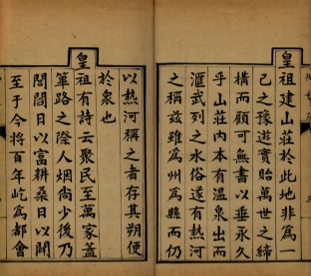 皇祖建山莊於此地非為一
己之豫遊實貽萬世之締
構而顧可無書以垂永久
乎山莊內本有溫泉出而
滙武列之水俗遂有熱河
之稱茲雖為州為縣而仍
以熱河稱之者存其朔便
於衆也
皇祖有詩云聚民至萬家蓋
篳路之際人烟尚少後乃
閭閻日以富耕桑日以闢
至于今將百年屹為都會